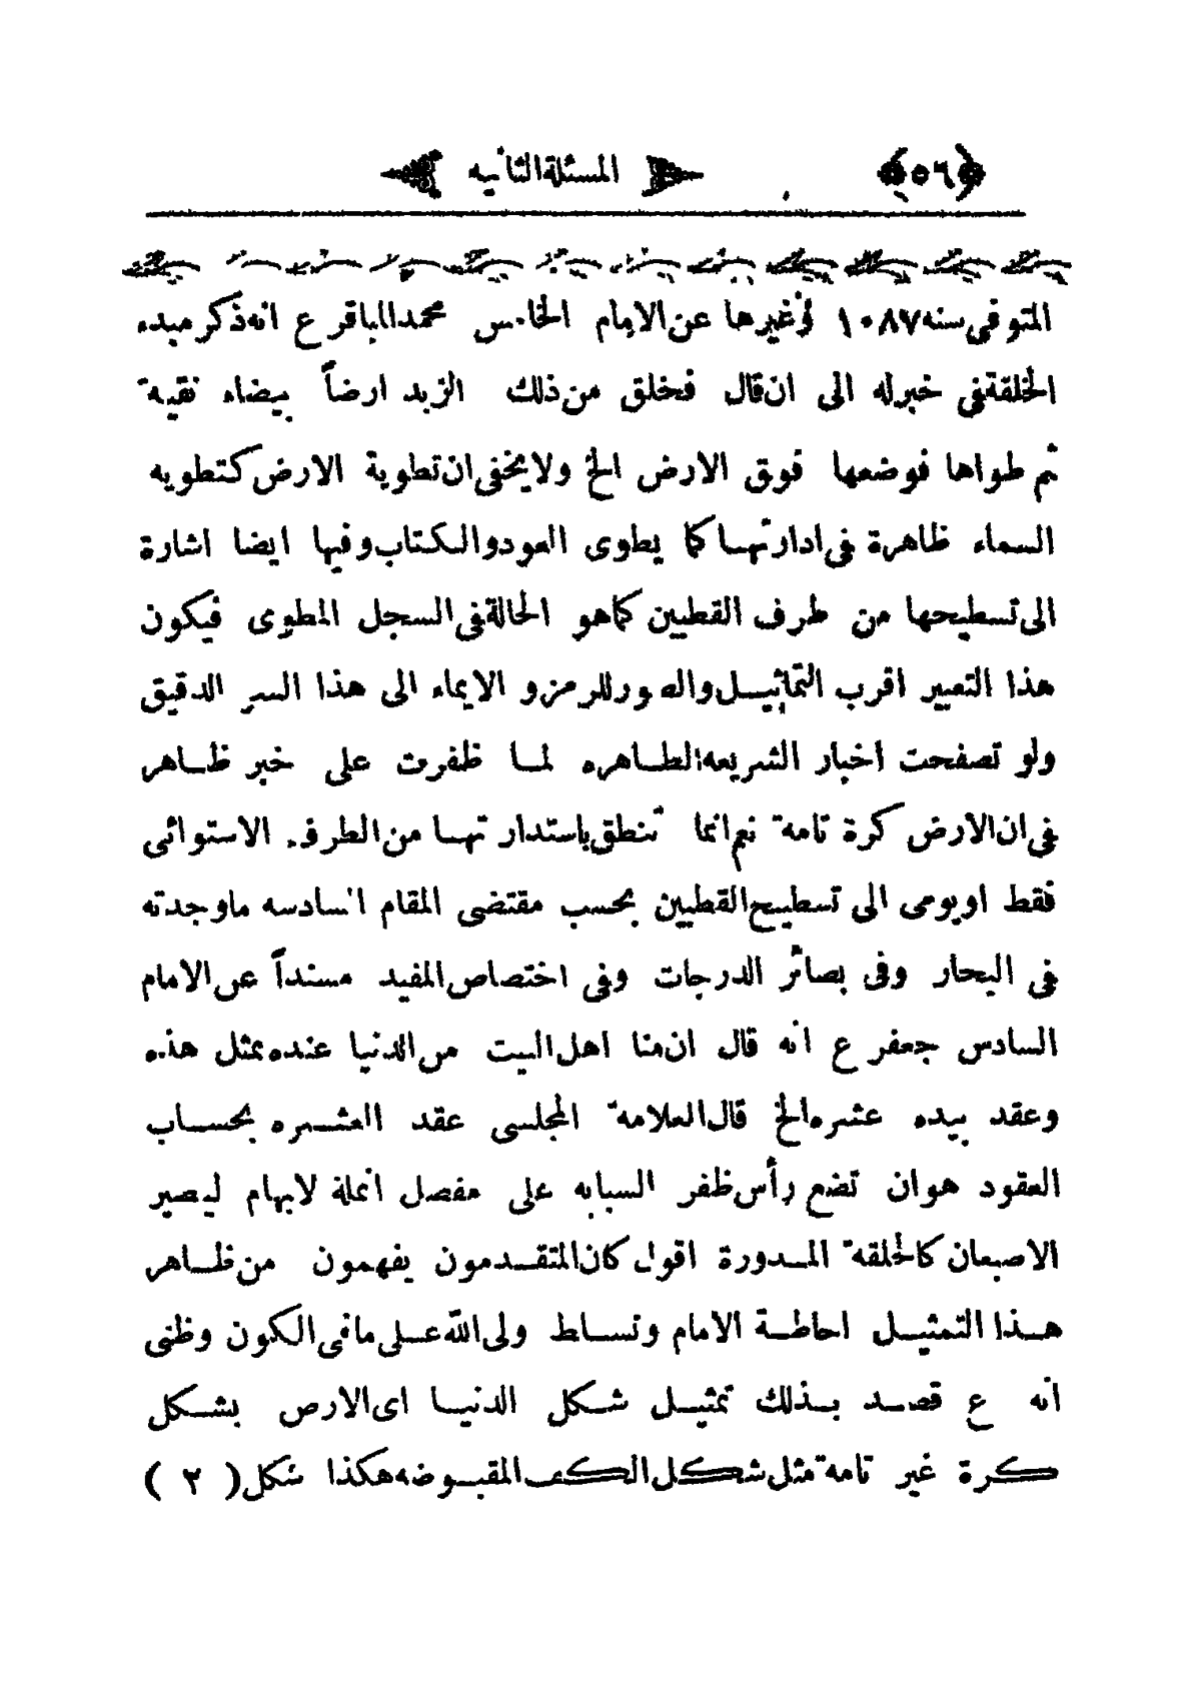 ﴿٥٦﴾ المسئلة الثانيه
المتوفى سنه ١٠٨٧ وغيرها عن الامام الخامس محمد الباقر ع انه ذكر مبدء
الخلقة فى خبر له الى ان قال فخلق من ذلك الزبد ارضاً بيضاء نقية
ثم طواها فوضعها فوق الارض الخ ولا يخفى ان تطوية الارض كتطويه
السماء ظاهرة فى ادارتها كما يطوى العود والكتاب وفيها ايضا اشارة
الى تسطيحها من طرف القطبين كما هو الحالة فى السجل المطوى فيكون
هذا التعبير اقرب التماثيل والصور للرمز و الايماء الى هذا السر الدقيق
ولو تصفحت اخبار الشريعه الطاهره لما ظفرت على خبر ظاهر
فى ان الارض كرة تامة نعم انما تنطق باستدارتها من الطرف الاستوائى
فقط او يومى الى تسطيح القطبين بحسب مقتضى المقام السادسه ما وجدته
فى البحار وفى بصائر الدرجات وفى اختصاص المفيد مسنداً عن الامام
السادس جعفر ع انه قال ان منا اهل البيت من الدنيا عنده بمثل هذه
وعقد بيده عشره الخ قال العلامة المجلسى عقد العشره بحساب
العقود هو ان تضع رأس ظفر السبابه على مفصل انملة لابهام ليصير
الاصبعان كالحلقة المدورة اقول كان المتقدمون يفهمون من ظاهر
هذا التمثيل احاطة الامام وتساط ولى الله على ما فى الكون وظنى
انه ع قصد بذلك تمثيل شكل الدنيا اى الارض بشكل
كرة غير تامة مثل شكل الكف المقبوضه هكذا شكل ( ٢ )